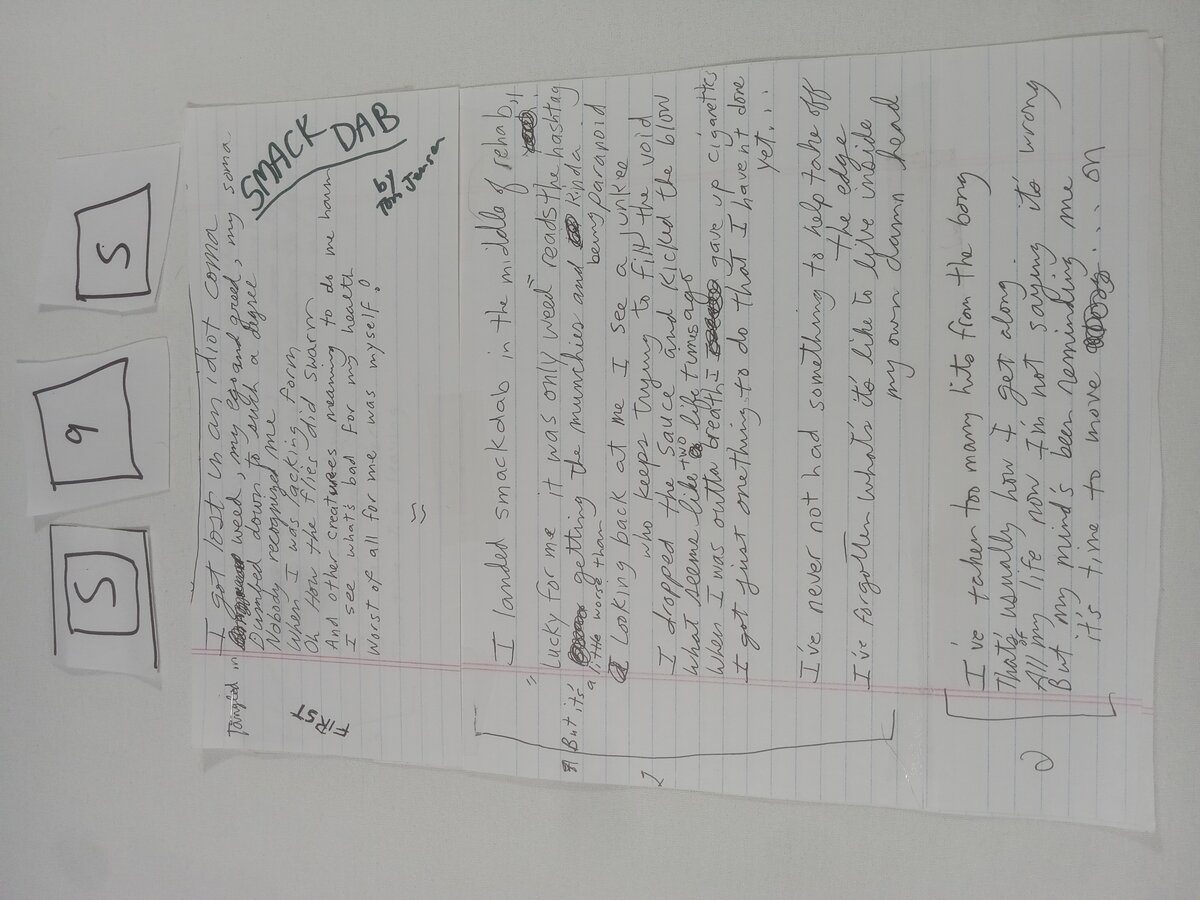 S
9
S
SMACK DAB
by
Jensen
I got lost in an idiot coma
Tangled in weed, my ego and greed, my soma
Dumbed down to such a degree
Nobody recognized me
When I was lacking form
Oh How the flies did swarm
And other creatures meaning to do me harm
I see what's bad for my health
Worst of all for me was myself
FIRST
I landed smackdab in the middle of rehab
"Lucky for me it was only weed" reads the hashtag
But it's getting the munchies and kinda
a little worse than being paranoid
Looking back at me I see a junkee
who keeps trying to fill the void
I dropped the sauce and kicked the blow
What seems like two life times ago
When I was outta breath I gave up cigarettes
I got just one thing to do that I haven't done
yet...
I've never not had something to help take off
the edge
I've forgotten what's it's like to live inside
my own damn head
2
I've taken too many hits from the bong
That's usually how I get along
All my life now I'm not saying it's wrong
But my mind's been reminding me
it's time to move ... on